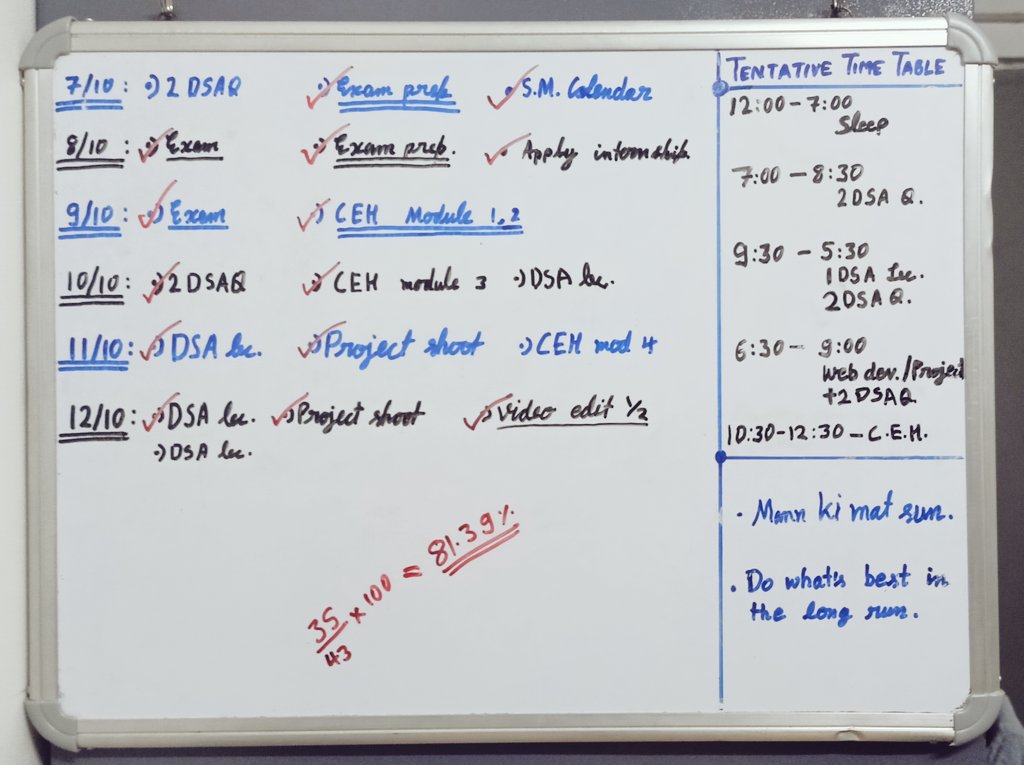 7/10: 2 DSAQ Exam prep S.M. Calendar
8/10: Exam Exam prep. Apply internship.
9/10: Exam CEH Module 1,2
10/10: 2 DSAQ CEH module 3 DSA lec.
11/10: DSA lec. Project shoot CEH mod 4
12/10: DSA lec. Project shoot Video edit 1/2
DSA lec.
35/43 × 100 = 81.39%
TENTATIVE TIME TABLE
12:00 - 7:00
Sleep
7:00 - 8:30
2 DSA Q.
9:30 - 5:30
1 DSA Lec.
2 DSA Q.
6:30 - 9:00
Web dev./Project
+2 DSAQ
10:30-12:30 - C.E.H.
· Mann ki mat sun.
· Do what's best in
the long run.